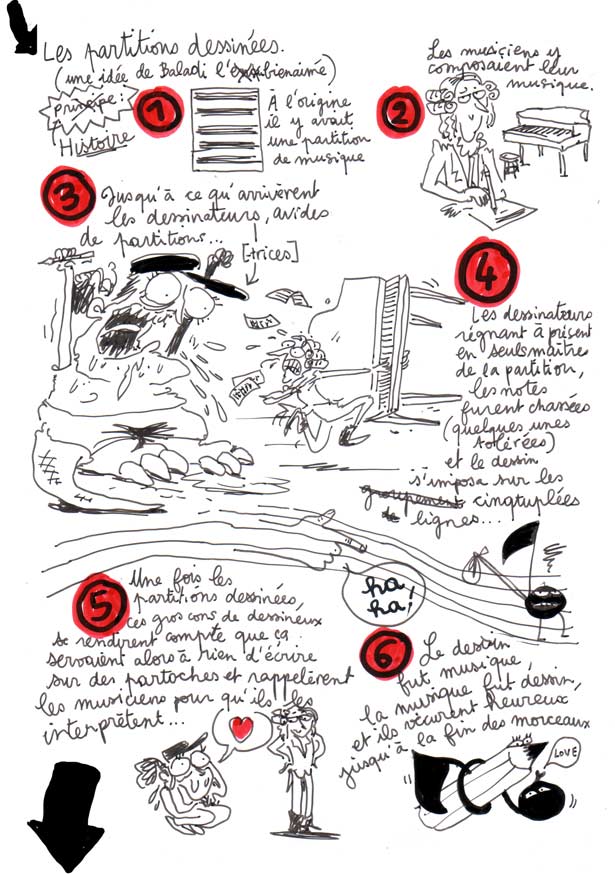 Les partitions dessinées.
(une idée de Baladi l'bienaimé)
principe :
Histoire
1
À l'origine
il y avait
une partition
de musique
2
Les musiciens y
composaient leur
musique.
3
Jusqu'à ce qu'arrivèrent
les dessinateurs, avides
de partitions...
[trices]
4
Les dessinateurs
régnant à présent
en seuls maîtres
de la partition,
les notes
furent chassées
(quelques unes
tolérées)
et le dessin
s'imposa sur les
groupement cinqtuplées
de lignes...
ha,
ha!
5
Une fois les
partitions dessinées,
ces gros cons de dessineux
se rendirent compte que ça
servaient alors à rien d'écrire
sur des partoches et rappelèrent
les musiciens pour qu'ils les
interprètent...
6
Le dessin
fut musique,
la musique fut dessin,
et ils vécurent heureux
jusqu'à la fin des morceaux
LOVE